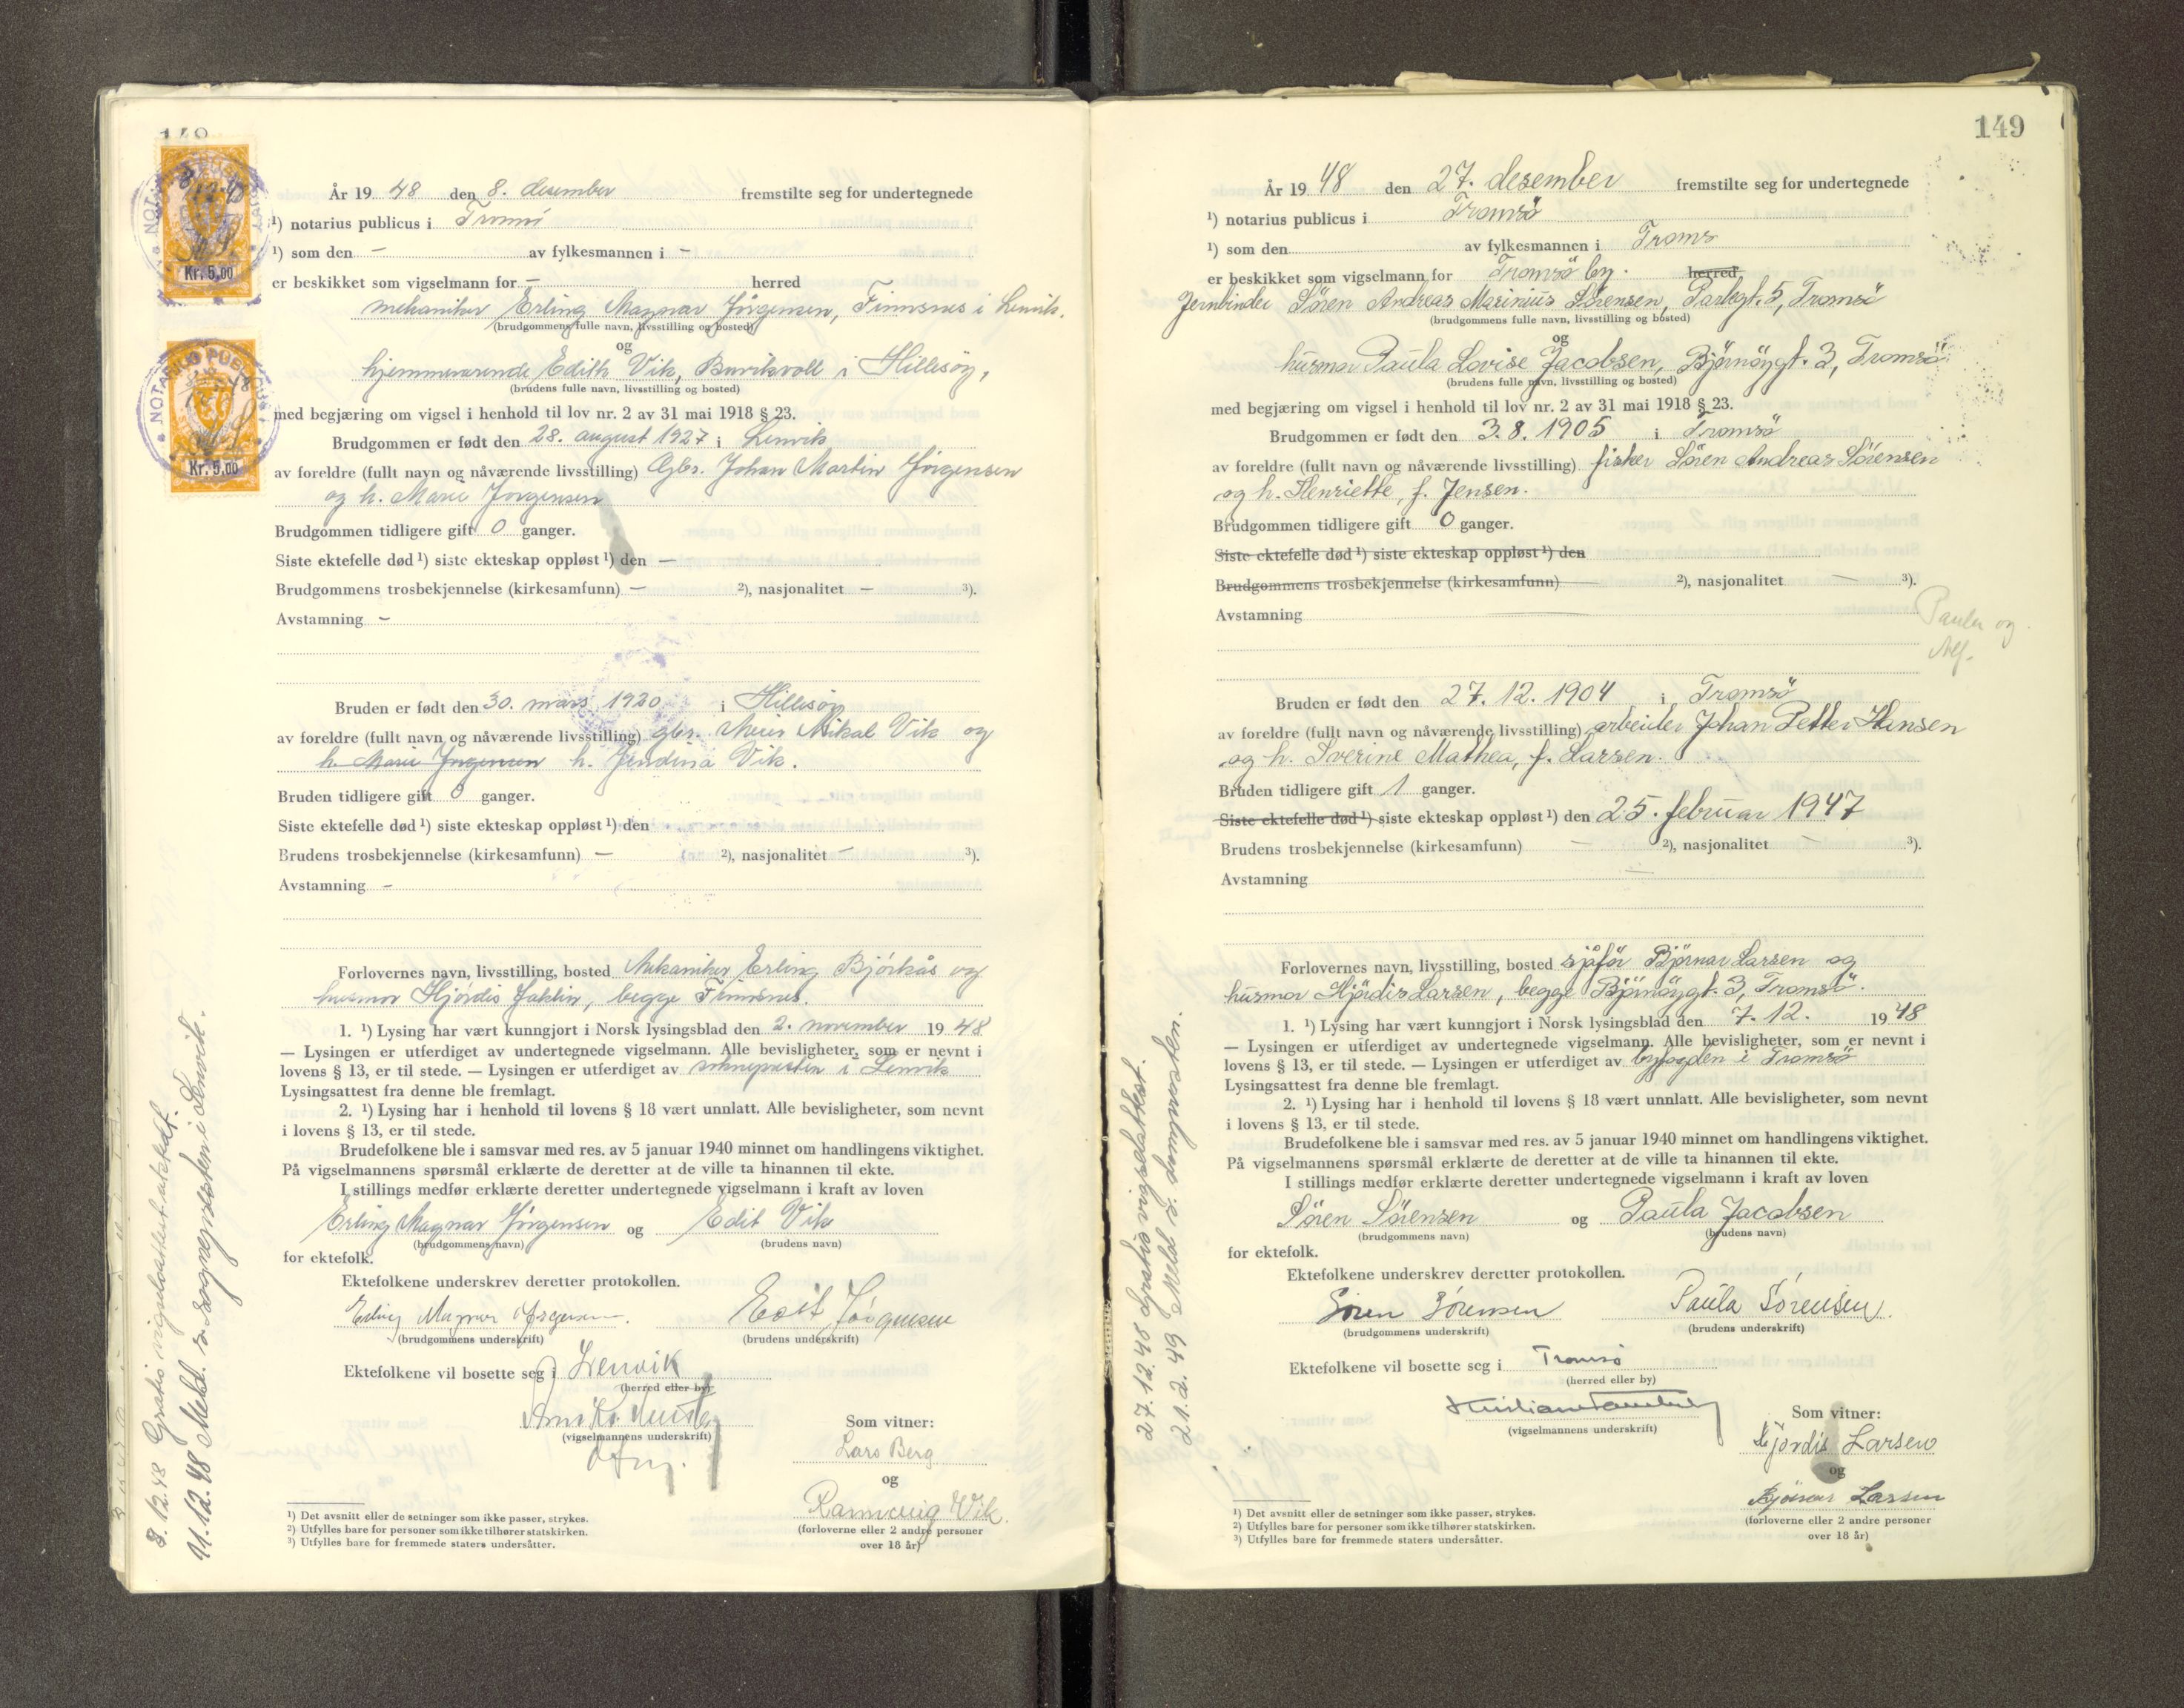 148
År 19 48 den 8. desember fremstilte seg for undertegnede
¹) notarius publicus i Tromsö
¹) som den – av fylkesmannen i –
er beskikket som vigselmann for – herred
mekaniker Erling Magnar Jörgensen, Finnsnes i Lenvik.
(brudgommens fulle navn, livsstilling og bosted)
og
hjemmeværende Edith Vik, i Hillesöy,
(brudens fulle navn, livsstilling og bosted)
med begjæring om vigsel i henhold til lov nr. 2 av 31 mai 1918 § 23.
Brudgommen er født den 28. august 1927 i Lenvik
av foreldre (fullt navn og nåværende livsstilling) Gbr. Johan Martin Jörgensen
og h. Marie Jörgensen
Brudgommen tidligere gift 0 ganger.
Siste ektefelle død ¹) siste ekteskap oppløst ¹) den –
Brudgommens trosbekjennelse (kirkesamfunn) – ²), nasjonalitet – ³).
Avstamning –
Bruden er født den 30. mars 1930 i Hillesöy
av foreldre (fullt navn og nåværende livsstilling) gbr. Meier Mikal Vik og
h. Marie Jörgensen h. Jendina Vik.
Bruden tidligere gift 0 ganger.
Siste ektefelle død ¹) siste ekteskap oppløst ¹) den
Brudens trosbekjennelse (kirkesamfunn) – ²), nasjonalitet – ³).
Avstamning –
Forlovernes navn, livsstilling, bosted Mekaniker Erling Björkås og
husmor Hjördis Jaklin, begge Finnsnes.
1. ¹) Lysing har vært kunngjort i Norsk lysingsblad den 2. november 19 48
— Lysingen er utferdiget av undertegnede vigselmann. Alle bevisligheter, som er nevnt i
lovens § 13, er til stede. — Lysingen er utferdiget av soknepresten i Lenvik
Lysingsattest fra denne ble fremlagt.
2. ¹) Lysing har i henhold til lovens § 18 vært unnlatt. Alle bevisligheter, som nevnt
i lovens § 13, er til stede.
Brudefolkene ble i samsvar med res. av 5 januar 1940 minnet om handlingens viktighet.
På vigselmannens spørsmål erklærte de deretter at de ville ta hinannen til ekte.
I stillings medfør erklærte deretter undertegnede vigselmann i kraft av loven
Erling Magnar Jörgensen og Edit Vik
(brudgommens navn) (brudens navn)
for ektefolk.
Ektefolkene underskrev deretter protokollen.
Erling Magnar Jørgensen. Edit Jørgensen
(brudgommens underskrift) (brudens underskrift)
Ektefolkene vil bosette seg i Lenvik
(herred eller by)
(vigselmannens underskrift)
Som vitner:
Lars Berg
og
Rannveig Vik.
(forloverne eller 2 andre personer
over 18 år)
¹) Det avsnitt eller de setninger som ikke passer, strykes.
²) Utfylles bare for personer som ikke tilhører statskirken.
³) Utfylles bare for fremmede staters undersåtter.
8.12.48 Gratis vigselsattest utstedt.
11.12.48 Meld. s. sognepresten i Lenvik.
NOTARIUS PUBLICUS
Kr. 5,00
NOTARIUS PUBLICUS
Kr. 5,00
149
År 19 48 den 27. desember fremstilte seg for undertegnede
¹) notarius publicus i Tromsö
¹) som den av fylkesmannen i Troms
er beskikket som vigselmann for Tromsö by. herred
Jernbinder Sören Andreas Marinius Sörensen, Parkgt. 5, Tromsö
(brudgommens fulle navn, livsstilling og bosted)
og
husmor Paula Lovise Jacobsen, Björnöygt. 3, Tromsö
(brudens fulle navn, livsstilling og bosted)
med begjæring om vigsel i henhold til lov nr. 2 av 31 mai 1918 § 23.
Brudgommen er født den 3.8.1905 i Tromsö
av foreldre (fullt navn og nåværende livsstilling) fisker Sören Andreas Sörensen
og h. Henriette, f. Jensen.
Brudgommen tidligere gift 0 ganger.
Siste ektefelle død ¹) siste ekteskap oppløst ¹) den
Brudgommens trosbekjennelse (kirkesamfunn) — ²), nasjonalitet — ³).
Avstamning
Paula og
Alf.
Bruden er født den 27.12.1904 i Tromsö
av foreldre (fullt navn og nåværende livsstilling) arbeider Johan Petter Hansen
og h. Sverine Mathea, f. Larsen.
Bruden tidligere gift 1 ganger.
Siste ektefelle død ¹) siste ekteskap oppløst ¹) den 25. februar 1947
Brudens trosbekjennelse (kirkesamfunn) – ²), nasjonalitet – ³).
Avstamning –
Forlovernes navn, livsstilling, bosted sjåför Björnar Larsen og
husmor Hjördis Larsen, begge Björnöygt. 3, Tromsö.
1. ¹) Lysing har vært kunngjort i Norsk lysingsblad den 7.12. 19 48
— Lysingen er utferdiget av undertegnede vigselmann. Alle bevisligheter, som er nevnt i
lovens § 13, er til stede. — Lysingen er utferdiget av byfogden i Tromsö
Lysingsattest fra denne ble fremlagt.
2. ¹) Lysing har i henhold til lovens § 18 vært unnlatt. Alle bevisligheter, som nevnt
i lovens § 13, er til stede.
Brudefolkene ble i samsvar med res. av 5 januar 1940 minnet om handlingens viktighet.
På vigselmannens spørsmål erklærte de deretter at de ville ta hinannen til ekte.
I stillings medfør erklærte deretter undertegnede vigselmann i kraft av loven
Sören Sörensen og Paula Jacobsen
(brudgommens navn) (brudens navn)
for ektefolk.
Ektefolkene underskrev deretter protokollen.
Sören Sørensen Paula Sørensen.
(brudgommens underskrift) (brudens underskrift)
Ektefolkene vil bosette seg i Tromsø
(herred eller by)
(vigselmannens underskrift)
Som vitner:
Hjørdis Larsen
og
Bjørnar Larsen
(forloverne eller 2 andre personer
over 18 år)
¹) Det avsnitt eller de setninger som ikke passer, strykes.
²) Utfylles bare for personer som ikke tilhører statskirken.
³) Utfylles bare for fremmede staters undersåtter.
27.12.48 Gratis vigselattest.
21.2.49 Meld s. domssorenskr.